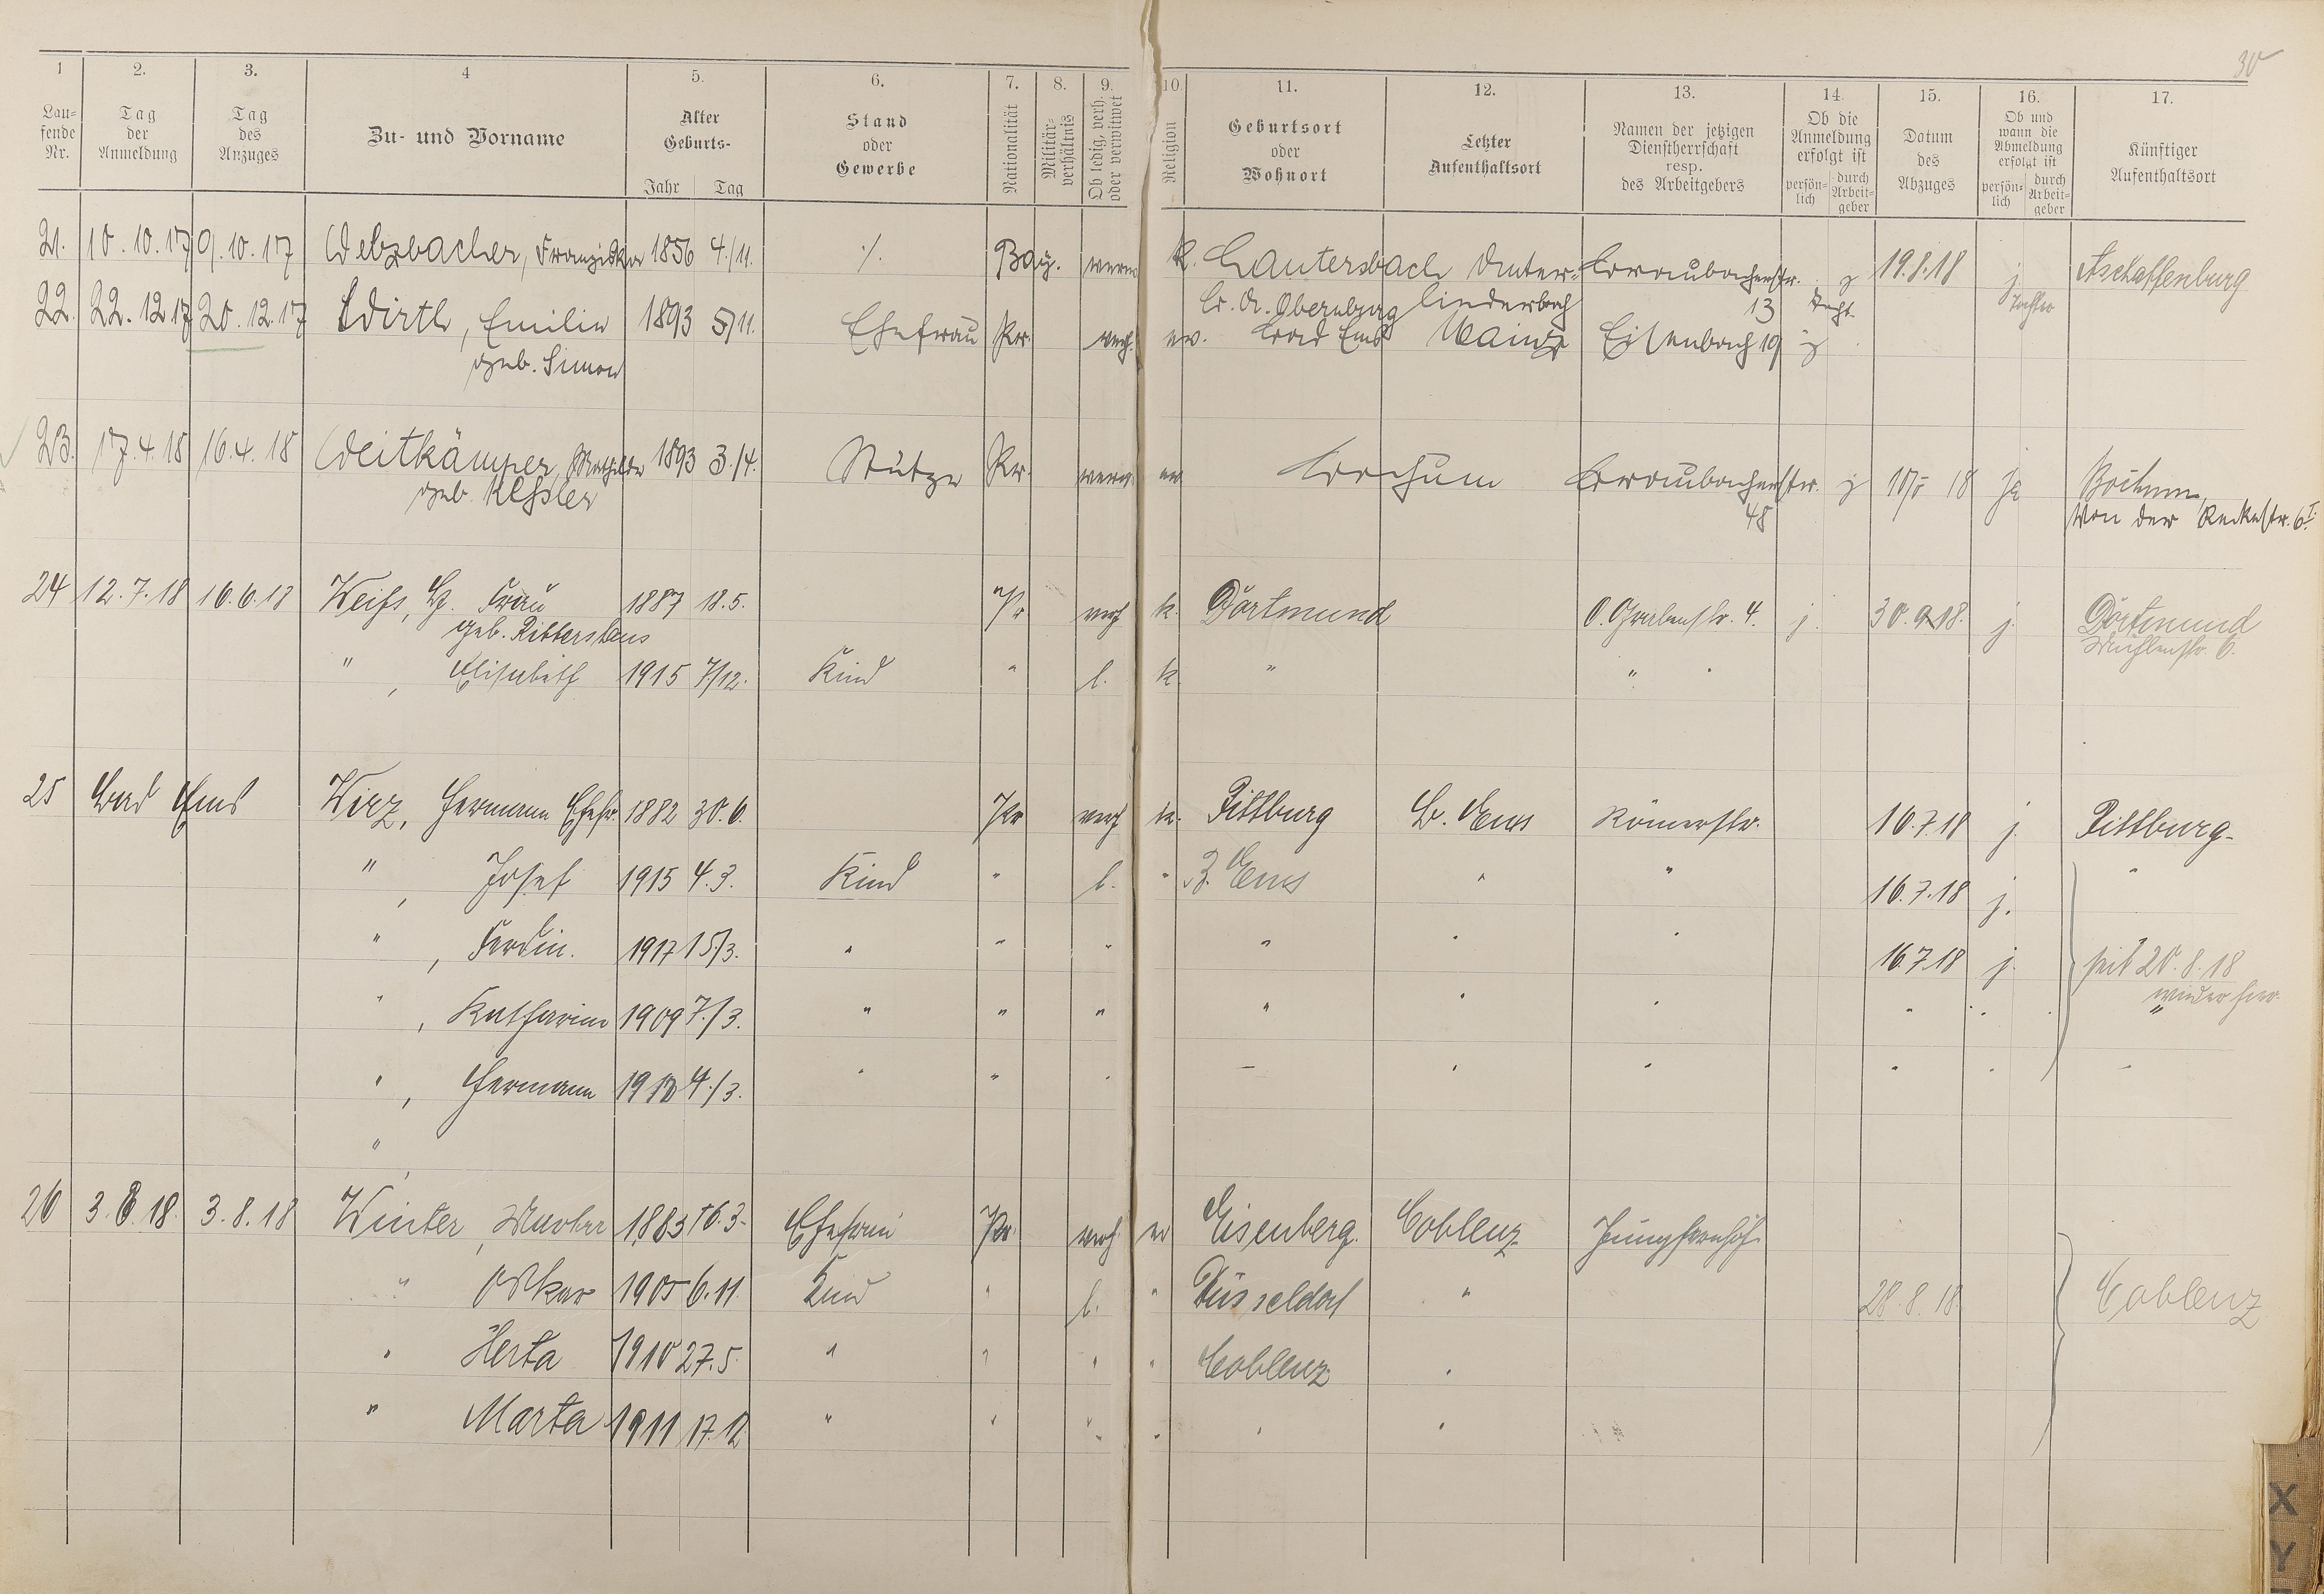 30
1 2. 3. 4 5. 6. 7. 8. 9. 10. 11. 12. 13. 14. 15. 16. 17.
Laufende Nr.
Tag der Anmeldung
Tag des Anzuges
Zu- und Vorname
Alter Geburts- Jahr Tag
Stand oder Gewerbe
Nationalität
Militär-verhältnis
Ob ledig, verh. oder verwitwet
Religion
Geburtsort oder Wohnort
Letzter Aufenthaltsort
Namen der jetzigen Dienstherrschaft resp. des Arbeitgebers
Ob die Anmeldung erfolgt ist persön-lich durch Arbeit-geber
Datum des Abzuges
Ob und wann die Abmeldung erfolgt ist persön-lich durch Arbeit-geber
Künftiger Aufenthaltsort
21. 10.10.17 9.10.17 Welzbacher, Franziska 1856 4./11. ./. Bay. verw. k. Lautersbach Unter- Braubacherstr. j 19.8.18 j. Aschaffenburg
B. A. Obernburg liederbach 13 Tocht. Tochter
22. 22.12.17 20.12.17 Wirth, Emilie 1893 5/11. Ehefrau Pr. verh. ev. Bad Ems Mainz Eisenbach 19 j
geb. Simon
23. 17.4.18 16.4.18 Weitkämper, Mathilde 1893 3./4. Stütze Pr. verw. ev Bochum Braubacherstr. j 10/5 18 ja Bochum,
geb. Kessler 48 Von der Reckestr. 6 I.
24 12.7.18 16.6.18 Weiß, Frau 1887 18.5. Pr verh k. Dortmund O. Grabenstr. 4. j. 30.9.18. j. Dortmund
geb. Rittershaus Mühlenstr. 6.
" , Elisabeth 1915 7/12. Kind " l. k " "
25 Bad Ems Wirz, Hermann Ehefr. 1882 30.6. Pr verh k. Pittburg B. Ems Römerstr. 16.7.18 j. Pittburg-
" , Josef 1915 4.3. Kind " l. " B. Ems " " 16.7.18 j. "
" , Ferdin. 1917 15/3. " " " " " " 16.7.18 j. seit 20.8.18
wieder hier.
" , Katharina 1909 7./3. " " " " " " " " "
" , Hermann 4./3. " " " – " " " " –
"
26 3.8.18. 3.8.18 Winter, 1883 16.3. Ehefrau Pr. verh. ev Eisenberg. Coblenz Jungfernhöh.
" Oskar 1905 6.11. Kind " l. " Düsseldorf " 28.8.18. Coblenz
" Herta 1910 27.5. " " " " Coblenz "
" Marta 1911 17.12. " " " " " "
X
Y